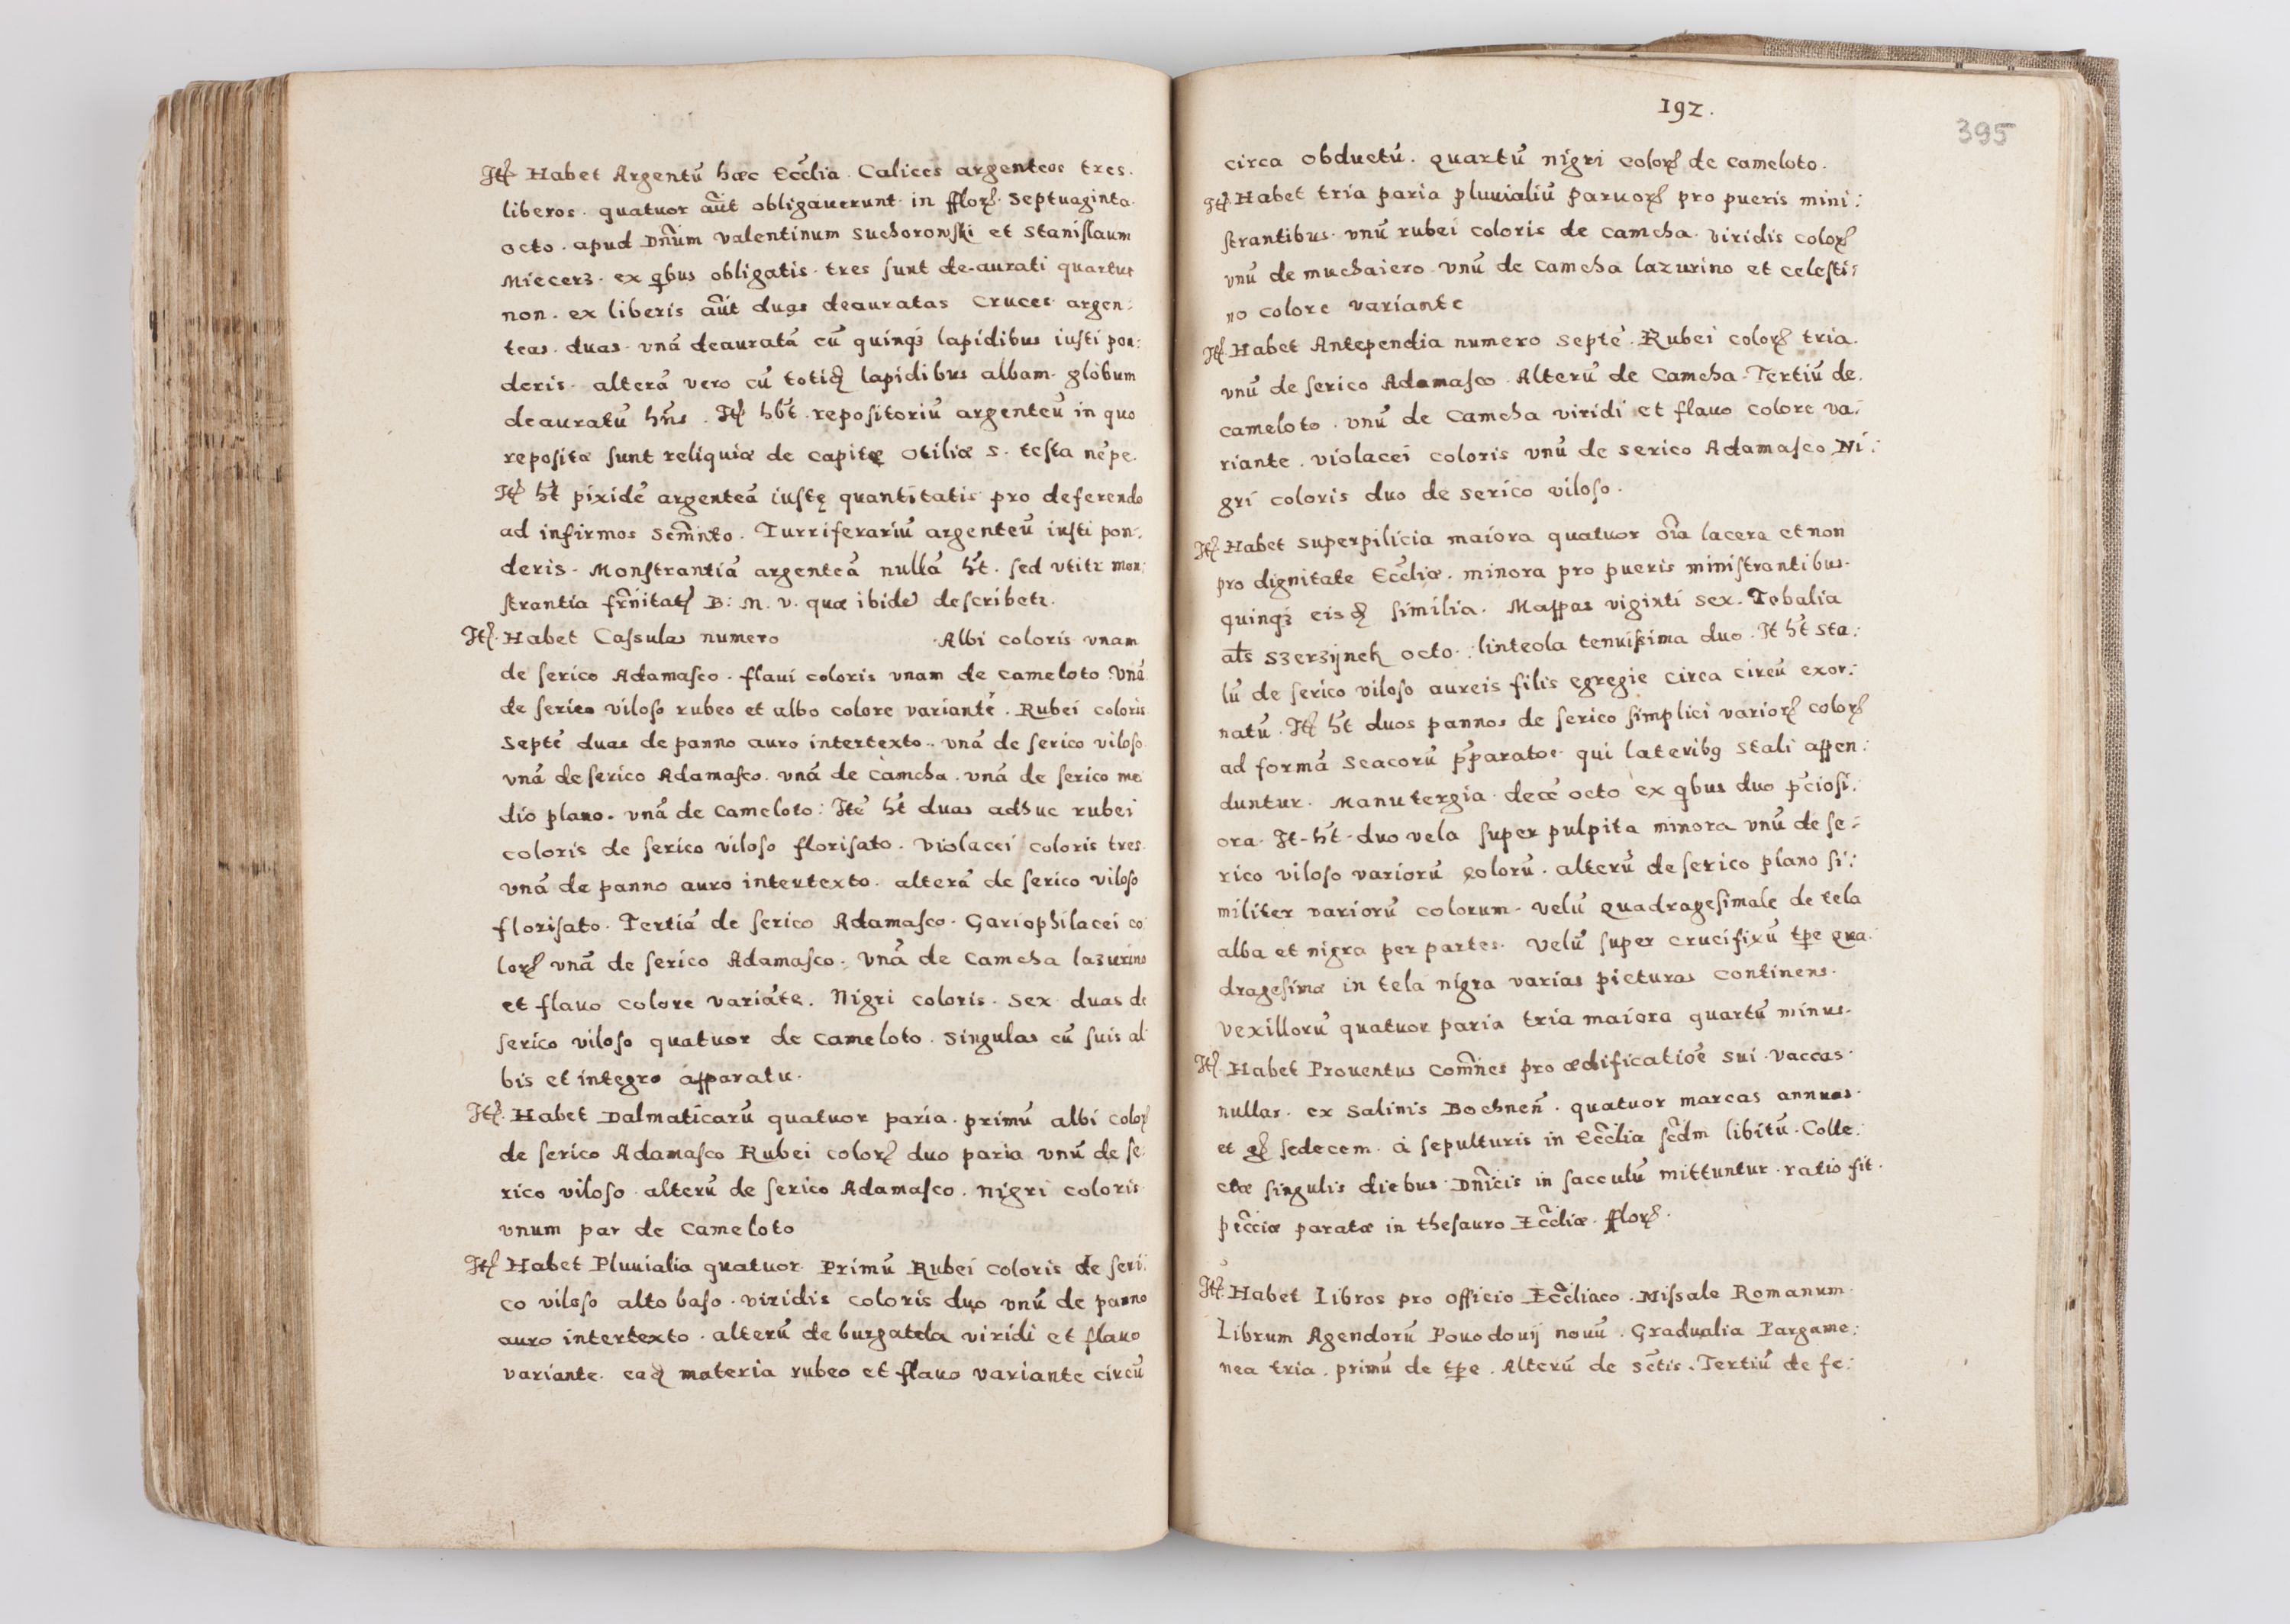 Itꝫ Habet Argentū hæc Eccłia. Calices argenteos tres.
liberos. quatuor aūt obligauerunt in fflorꝫ. Septuaginta
octo. apud Dn̄um Valentinum Suchorowſki et Staniſlaum
Miecerz. ex qbus obligatis. tres ſunt de-aurati quartus
non. ex liberis aūt duas deauratas Cruces argen:
teas. duas. vnā deauratā cū quinqꝫ lapidibus iuſti pon:
deris. alterā vero cū totidꝫ lapidibus albam. globum
deauratū hn̄s. Itꝫ hbt̄. repoſitoriū argenteū in quo
repoſitæ ſunt reliquiæ de capite Otiliæ S. teſta nēpe.
Itꝫ ht̄ pixidē argenteā iuſtę quantitatis pro deferendo
ad infirmos Sem̄nto. Turriferariū argenteū iuſti pon:
deris. Monſtrantiā argenteā nullā ht̄. ſed vtitr mon:
ſtrantia frn̄itatꝫ B: M. V. quæ ibidē deſcribetr.
Itꝫ. Habet Caſsulas numero Albi coloris vnam
de ſerico Adamaſco. flaui coloris vnam de cameloto. Vnā
de ſerico viloſo rubeo et albo colore variante. Rubei coloris
Septē duas de panno auro intertexto. vnā de ſerico viloſo
vnā de ſerico Adamaſco. vnā de camcha. vnā de ſerico me
dio plano. vnā de Cameloto: Itē ht̄ duas adhuc rubei
coloris de ſerico viloſo floriſato. Violacei coloris tres
vnā de panno auro intertexto. alterā de ſerico viloſo
floriſato. Tertiā de ſerico Adamaſco. Gariophilacei co
lorꝫ vnā de ſerico Adamaſco. Vnā de Camcha lazurino
et flauo colore variāte. Nigri coloris. Sex duas de
ſerico viloſo quatuor de Cameloto. Singulas cū ſuis al
bis et integro apparatu.
Itꝫ. Habet Dalmaticarū quatuor paria. primū albi colorꝫ
de ſerico Adamaſco Rubei colorꝫ duo paria vnū de ſe:
rico viloſo alterū de ſerico Adamaſco. Nigri coloris
vnum par de Cameloto
Itꝫ Habet Pluuialia quatuor. Primū Rubei coloris de ſeri:
co viloſo alto baſo. viridis coloris duo vnū de panno
auro intertexto. alterū de burgatela viridi et flauo
variante. eadꝫ materia rubeo et flauo variante circū
192.
395
circa obductū. Quartū nigri colorꝫ de cameloto.
Itꝫ Habet tria paria pluuialiū paruorꝫ pro pueris mini:
ſtrantibus. vnū rubei coloris de camcha. viridis colorꝫ
vnū de muchaiero. vnū de Camcha lazurino et celeſti:
no colore variante
Itꝫ Habet Antependia numero Septē. Rubei colorꝫ tria.
vnū de ſerico Adamaſco. Alterū de Camcha. Tertiū de.
cameloto. vnū de Camcha viridi et flauo colore va:
riante. Violacei coloris vnū de Serico Adamaſco Ni:
gri coloris duo de Serico viloſo.
Itꝫ. Habet Superpilicia maiora quatuor oīa lacera et non
pro dignitate Eccłiæ. minora pro pueris miniſtrantibus.
quinqꝫ eisdꝫ ſimilia. Mappas viginti sex. Tobalia
als Szerzijnek octo. linteola tenuiſsima duo. It ht̄ Sta:
lū de ſerico viloſo aureis filis egregie circa circū exor:
natū. Itꝫ ht̄ duos pannos de ſerico ſimplici variorꝫ colorꝫ
ad formā Scacorū p̄paratos qui lateribꝰ Stali appen:
duntur. Manutergia decē octo ex qbus duo p̄cioſi:
ora. It. ht̄. duo vela ſuper pulpita minora vnū de ſe:
rico viloſo variorū colorū. alterū de ſerico plano ſi:
militer variorū colorum. Velū Quadrageſimale de tela
alba et nigra per partes. Velū ſuper crucifixū tp̄e Qua:
drageſimæ in tela nigra varias picturas continens.
Vexillorū quatuor paria tria maiora quartū minus.
Itꝫ. Habet Prouentus com̄nes pro ædificatiōe Sui. Vaccas
nullas. ex Salinis Bochnen̄. quatuor marcas annuas.
et gꝫ ſedecem. à ſepulturis in Eccłia ſcdm̄ libitū. Colle:
ctæ ſingulis diebus Dn̄icis in ſacculū mittuntur. ratio fit.
pec̄ciæ paratæ in theſauro Eccłiæ. fflorꝫ.
Itꝫ. Habet Libros pro officio Eccłiaco. Miſsale Romanum
Librum Agendorū Pouodouij nouū. Gradualia Pargame:
nea tria. primū de tp̄e. Alterū de Sc̄tis. Tertiū de fe: